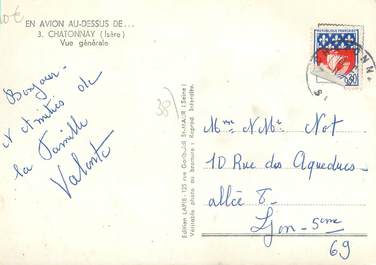 10€
EN AVION AU-DESSUS DE...
3. CHATONNAY (Isère)
Vue générale
Bonjour
& Amitiés de
la Famille
Valente
38)
Edition LAPIE - 125 rue Garibaldi St-MAUR (Seine)
Véritable photo au bromure - Reprod. Interdite.
REPUBLIQUE FRANCAISE
0,30
Mme & Mr Not
10 Rue des Aqueducs
allée E
Lyon - 5eme
69